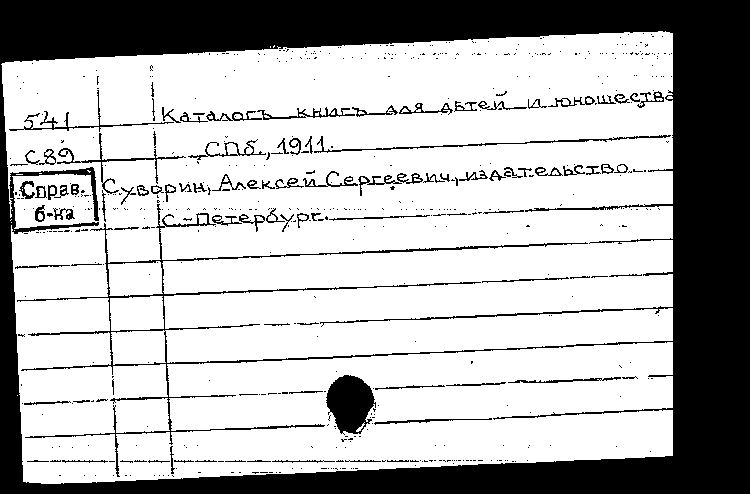 541
Каталогъ книгъ для дѣтей и юношества
С89
СПб., 1911.
Справ.
б-ка
Суворин, Алексей Сергеевич, издательство.
С.-Петербург.